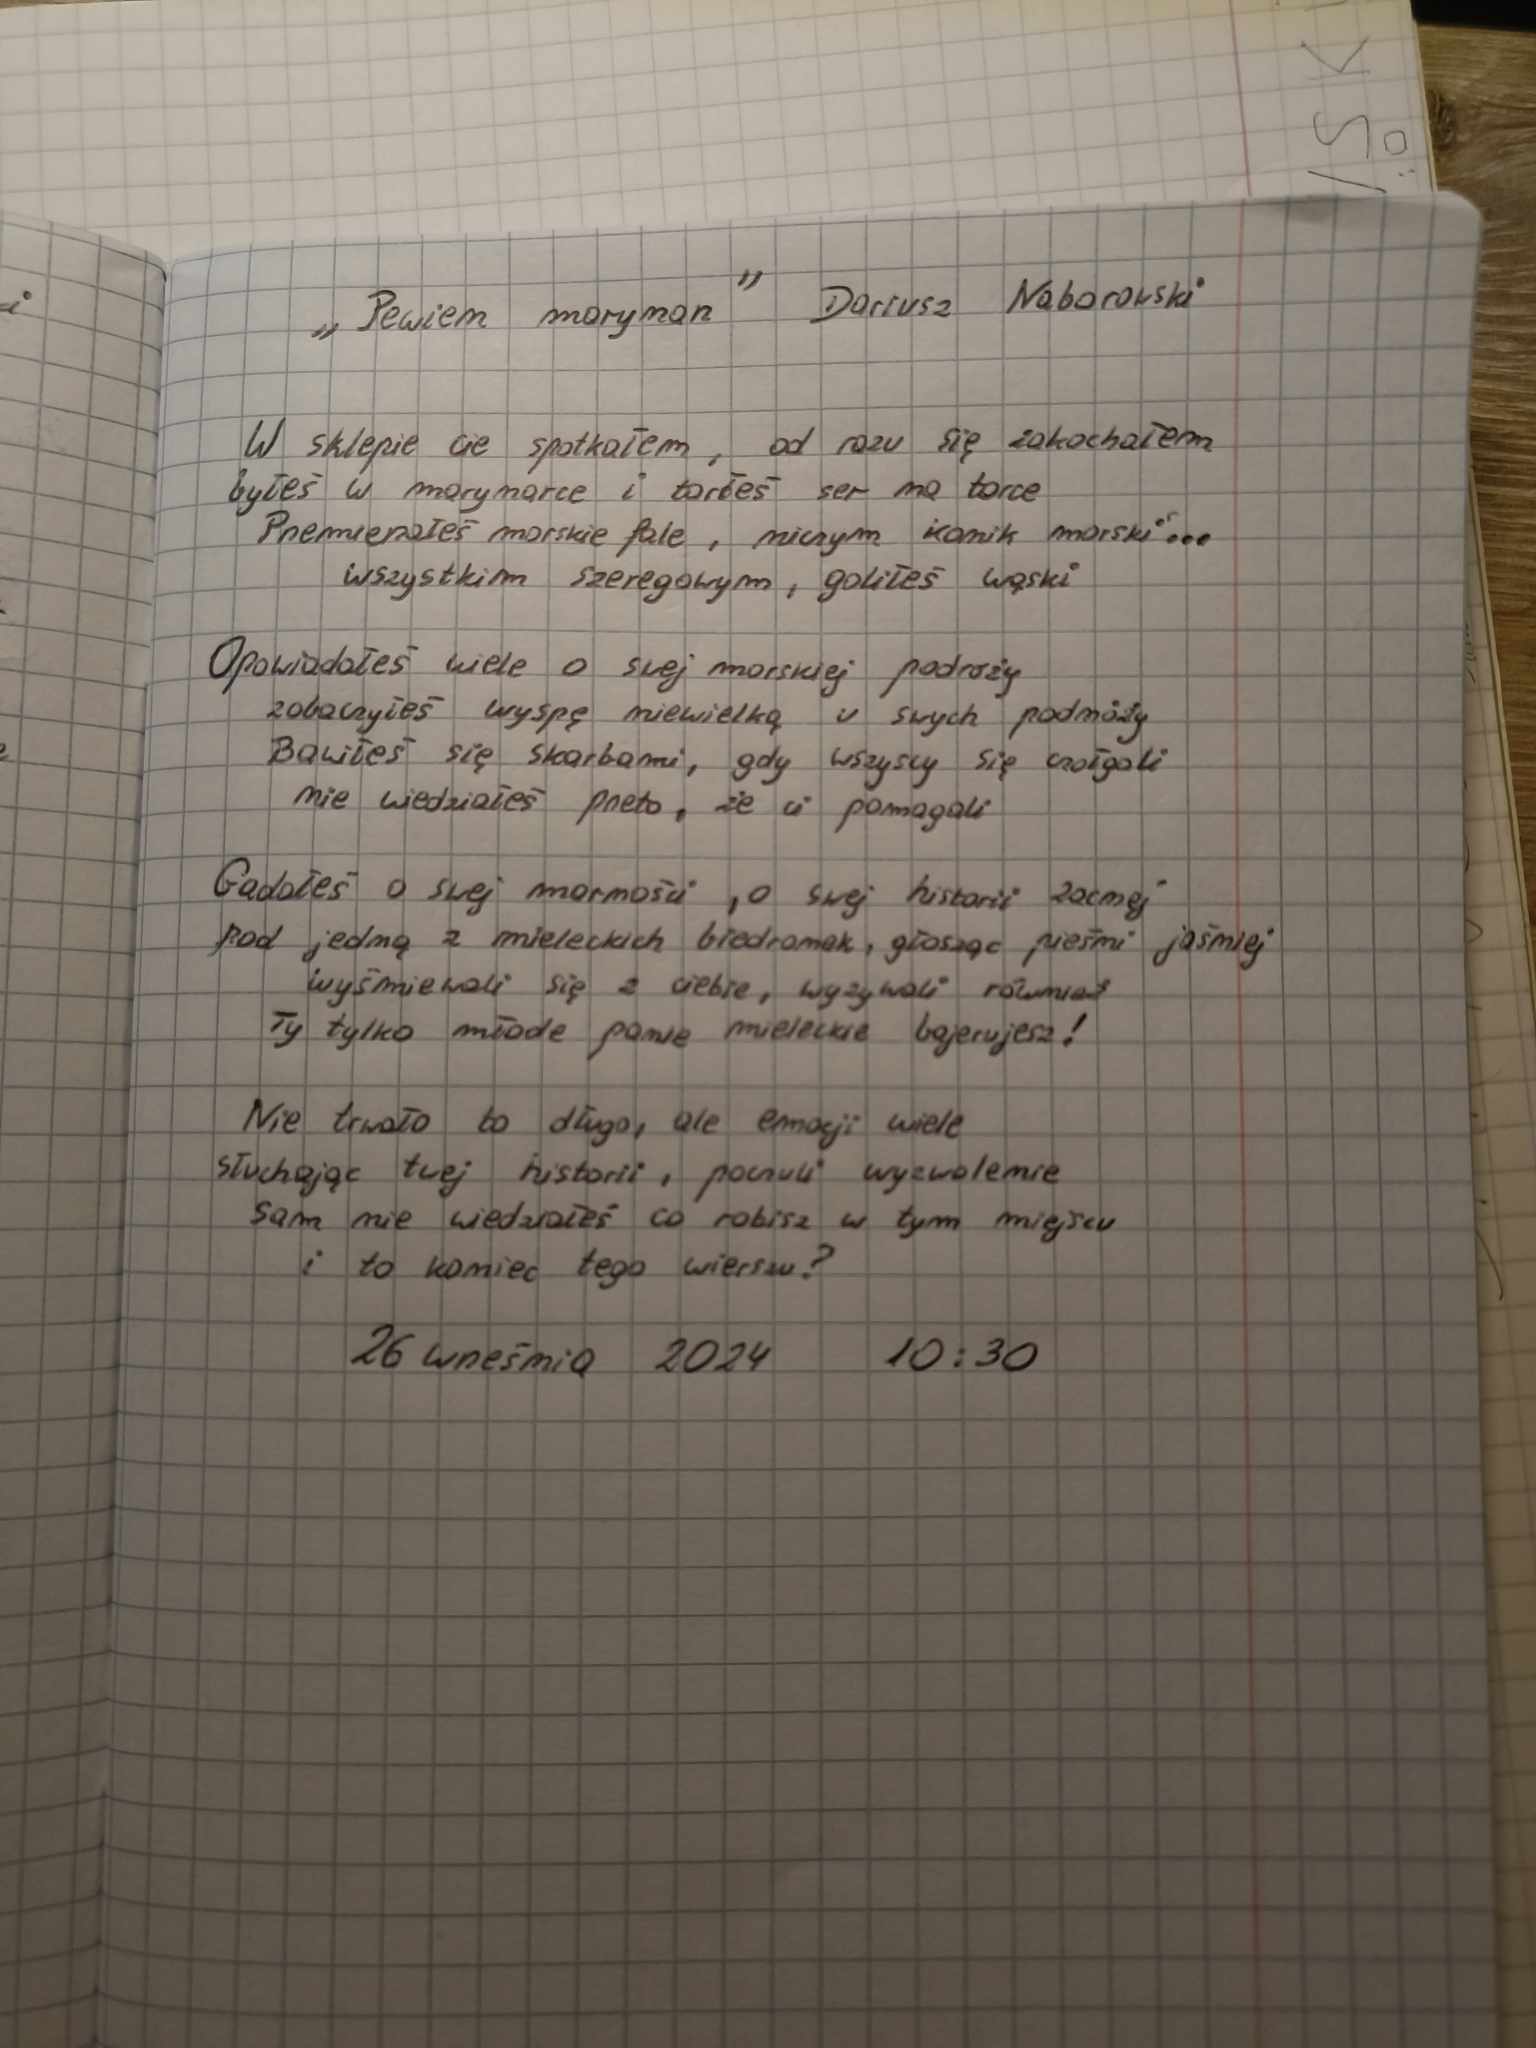 „Pewien maryman" Dariusz Naborowski
W sklepie cie spotkałem, od razu się zakochałem
byłeś w marynarce i tarłeś ser na tarce
Przemierzałeś morskie fale, niczym konik morski...
wszystkim szeregowym, goliłeś wąski
Opowiadałeś wiele o swej morskiej podróży
zobaczyłeś wyspę niewielką u swych podnóży
Bawiłeś się skarbami, gdy wszyscy się czołgali
nie wiedziałeś przeto, że ci pomagali
Gadałeś o swej marności, o swej historii zacnej
pod jedną z mieleckich biedronek, głosząc pieśni jaśniej
wyśmiewali się z ciebie, wyzywali również
Ty tylko młode panie mieleckie bajerujesz!
Nie trwało to długo, ale emocji wiele
słuchając twej historii, poczuli wyzwolenie
Sam nie wiedziałeś co robisz w tym miejscu
i to koniec tego wierszu?
26 września 2024 10:30